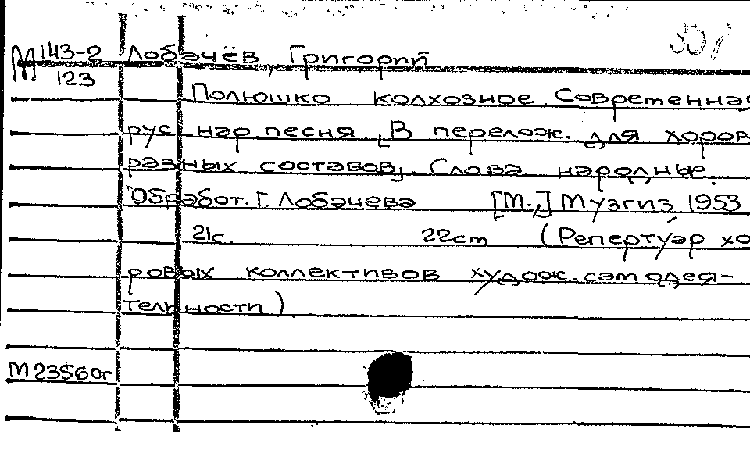 М 143-2 Лобачёв, Григорий
123
Полюшко колхозное. Современная
рус. нар песня [В перелож. для хоров
разных составов]. Слова народные.
Обработ. Г. Лобачева [М.,] Музгиз 1953
21с. 22cm (Репертуар хо
ровых коллективов худож. самодея-
тельности)
М 23560г